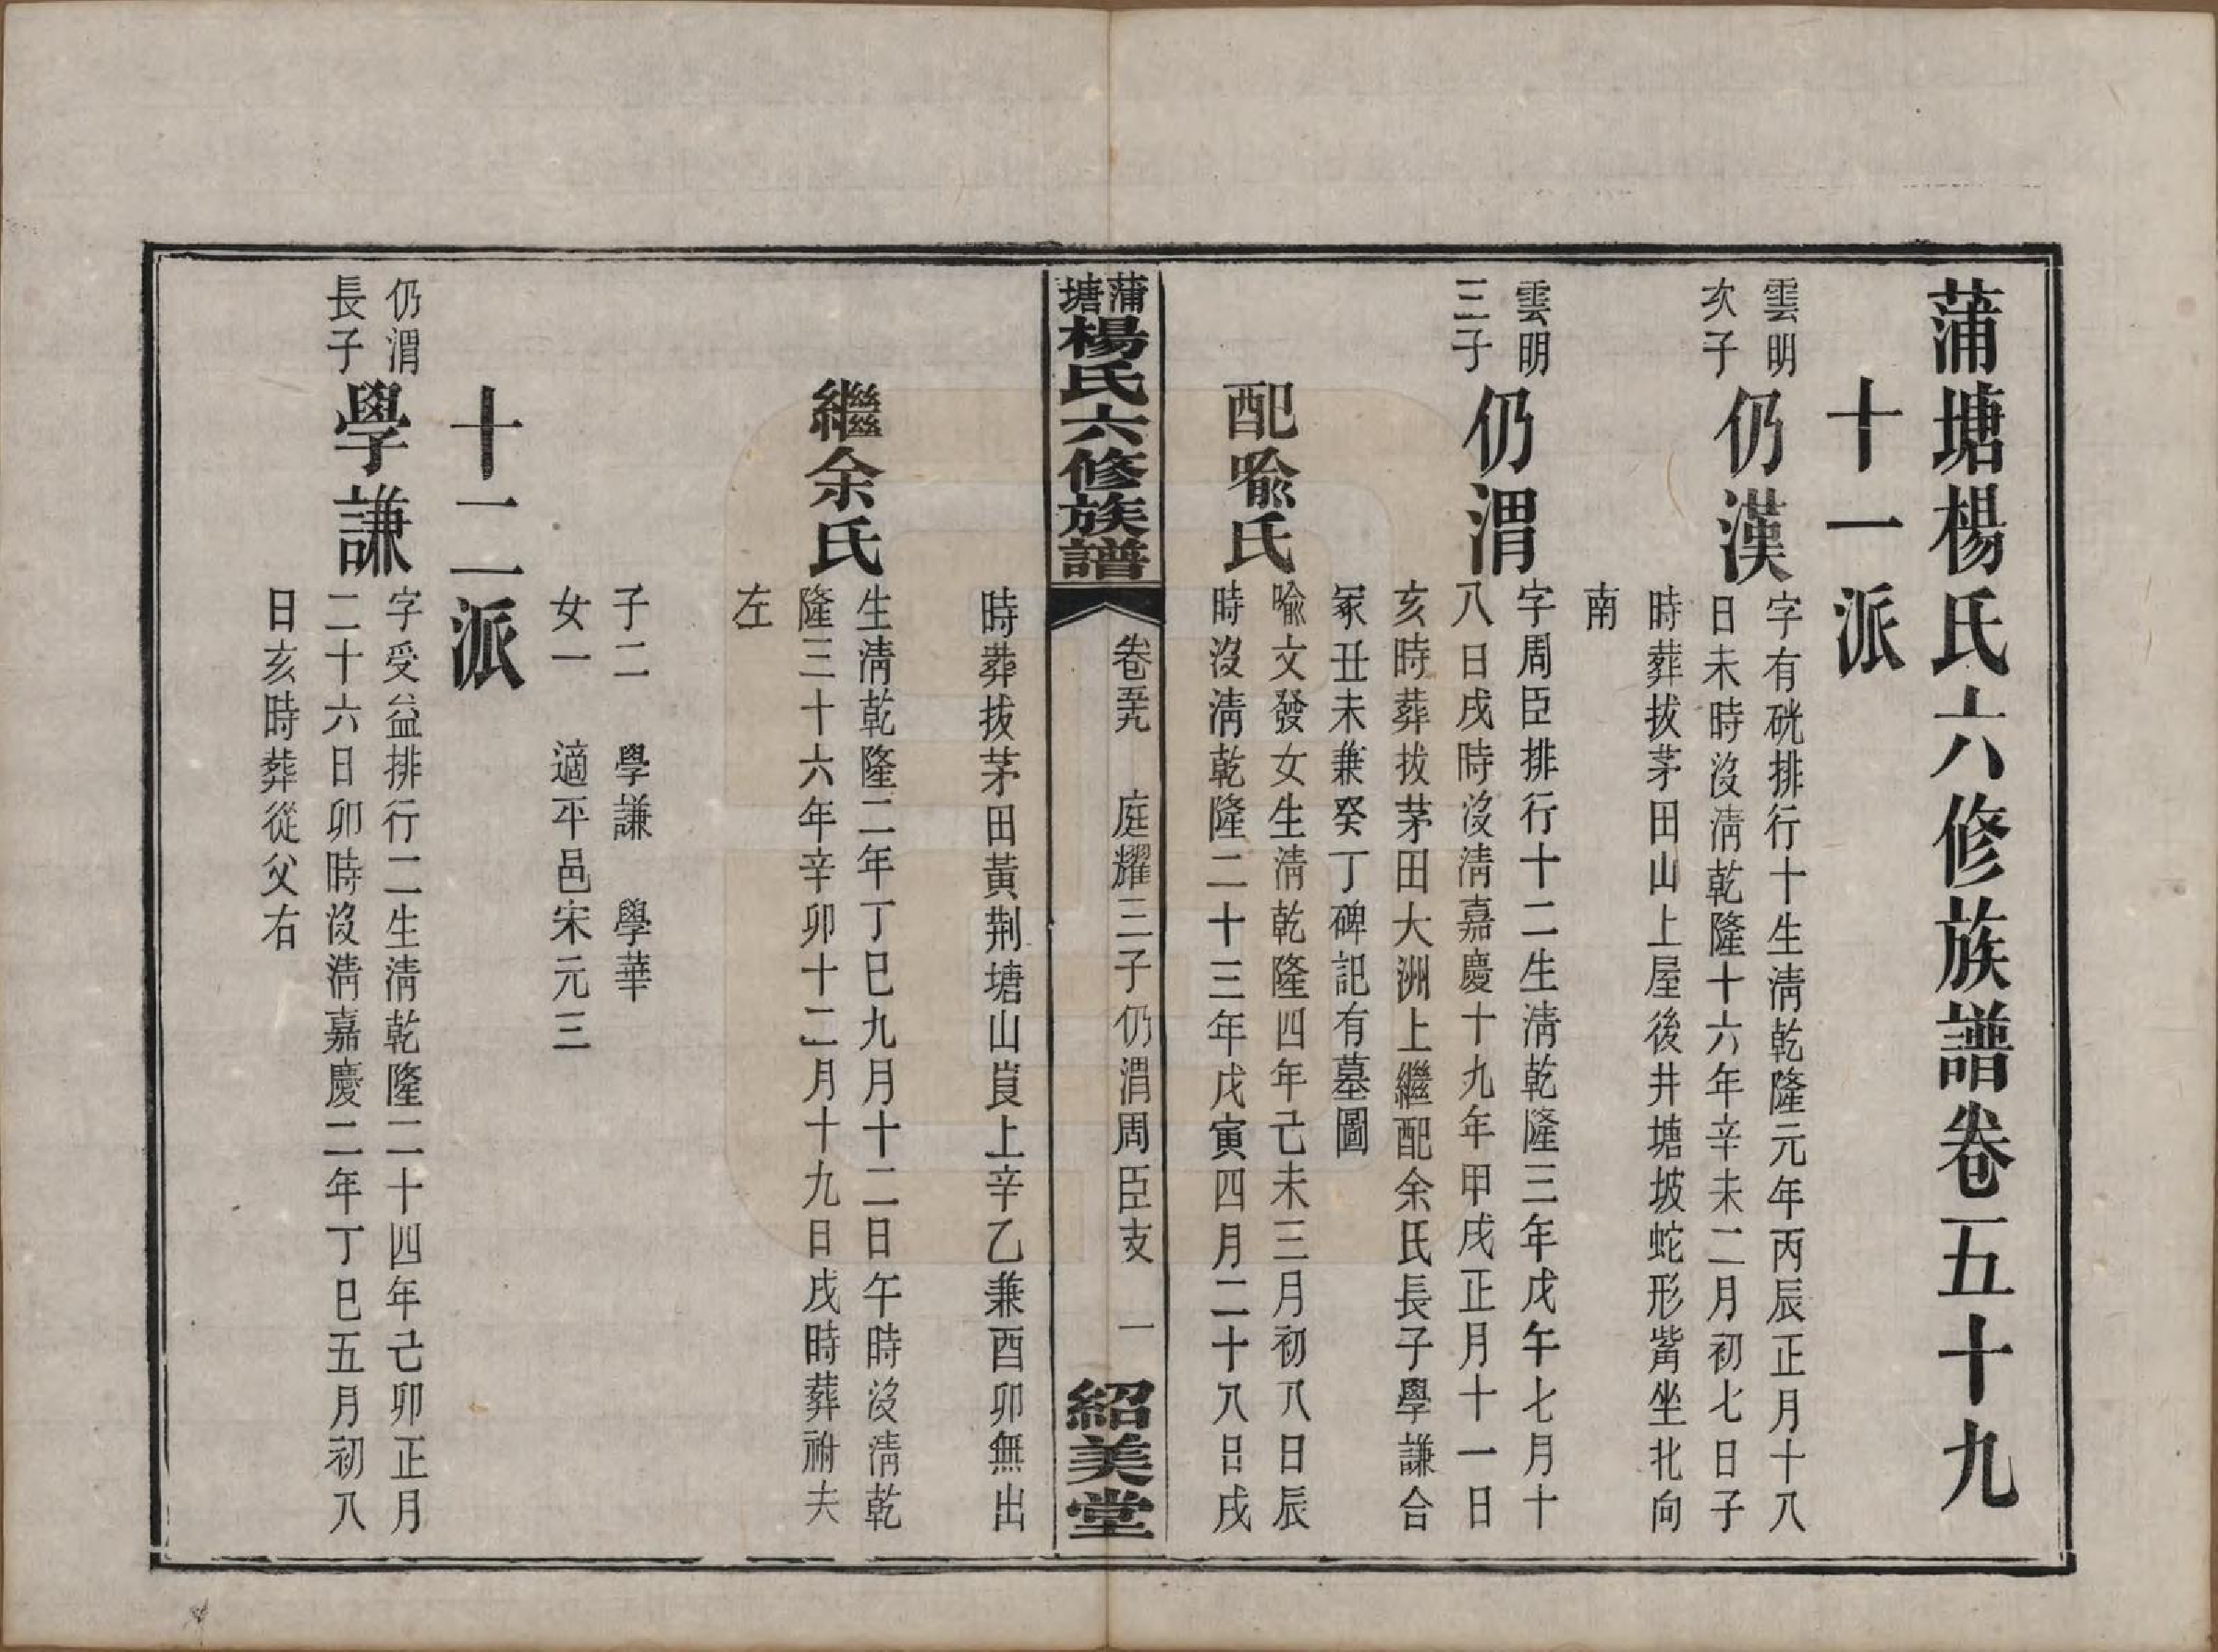 蒲塘楊氏六修族譜卷五十九
十一派
雲明
次子
仍漢
字有硄排行十生淸乾隆元年丙辰正月十八
日未時沒淸乾隆十六年辛未二月初七日子
時葬拔茅田山上屋後井塘坡蛇形觜坐北向
南
雲明
三子
仍渭
字周臣排行十二生淸乾隆三年戊午七月十
八日戌時沒淸嘉慶十九年甲戌正月十一日
亥時葬拔茅田大洲上繼配余氏長子學謙合
冢丑未兼癸丁碑記有墓圖
配喩氏
喩文發女生淸乾隆四年己未三月初八日辰
時沒淸乾隆二十三年戊寅四月二十八日戌
蒲塘楊氏六修族譜
卷五九 庭耀三子仍渭周臣支 一
紹美堂
時葬拔茅田黃荆塘山崀上辛乙兼酉卯無出
繼余氏
生淸乾隆二年丁巳九月十二日午時沒淸乾
隆三十六年辛卯十二月十九日戌時葬祔夫
左
子二 學謙 學華
女一 適平邑宋元三
十二派
仍渭
長子
學謙
字受益排行二生淸乾隆二十四年己卯正月
二十六日卯時沒淸嘉慶二年丁巳五月初八
日亥時葬從父右